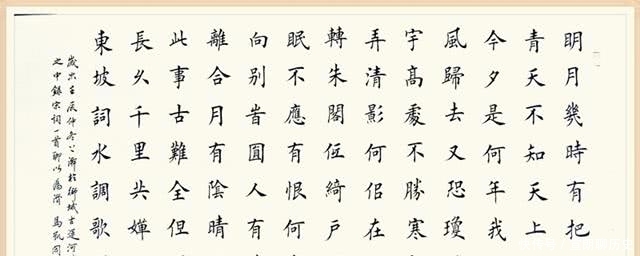 明月幾時有把
青天不知天上
今夕是何年我
風歸去又恐瓊
宇高處不勝寒
弄清影何佀在
轉朱閣低綺戶
眠不應有恨何
向别旹圓人有
離合月有陰晴
此事古難全但
長久千里共嬋
東坡詞水調歌
歲次壬辰仲冬 城古運河
之中錄宋詞一首聊以為